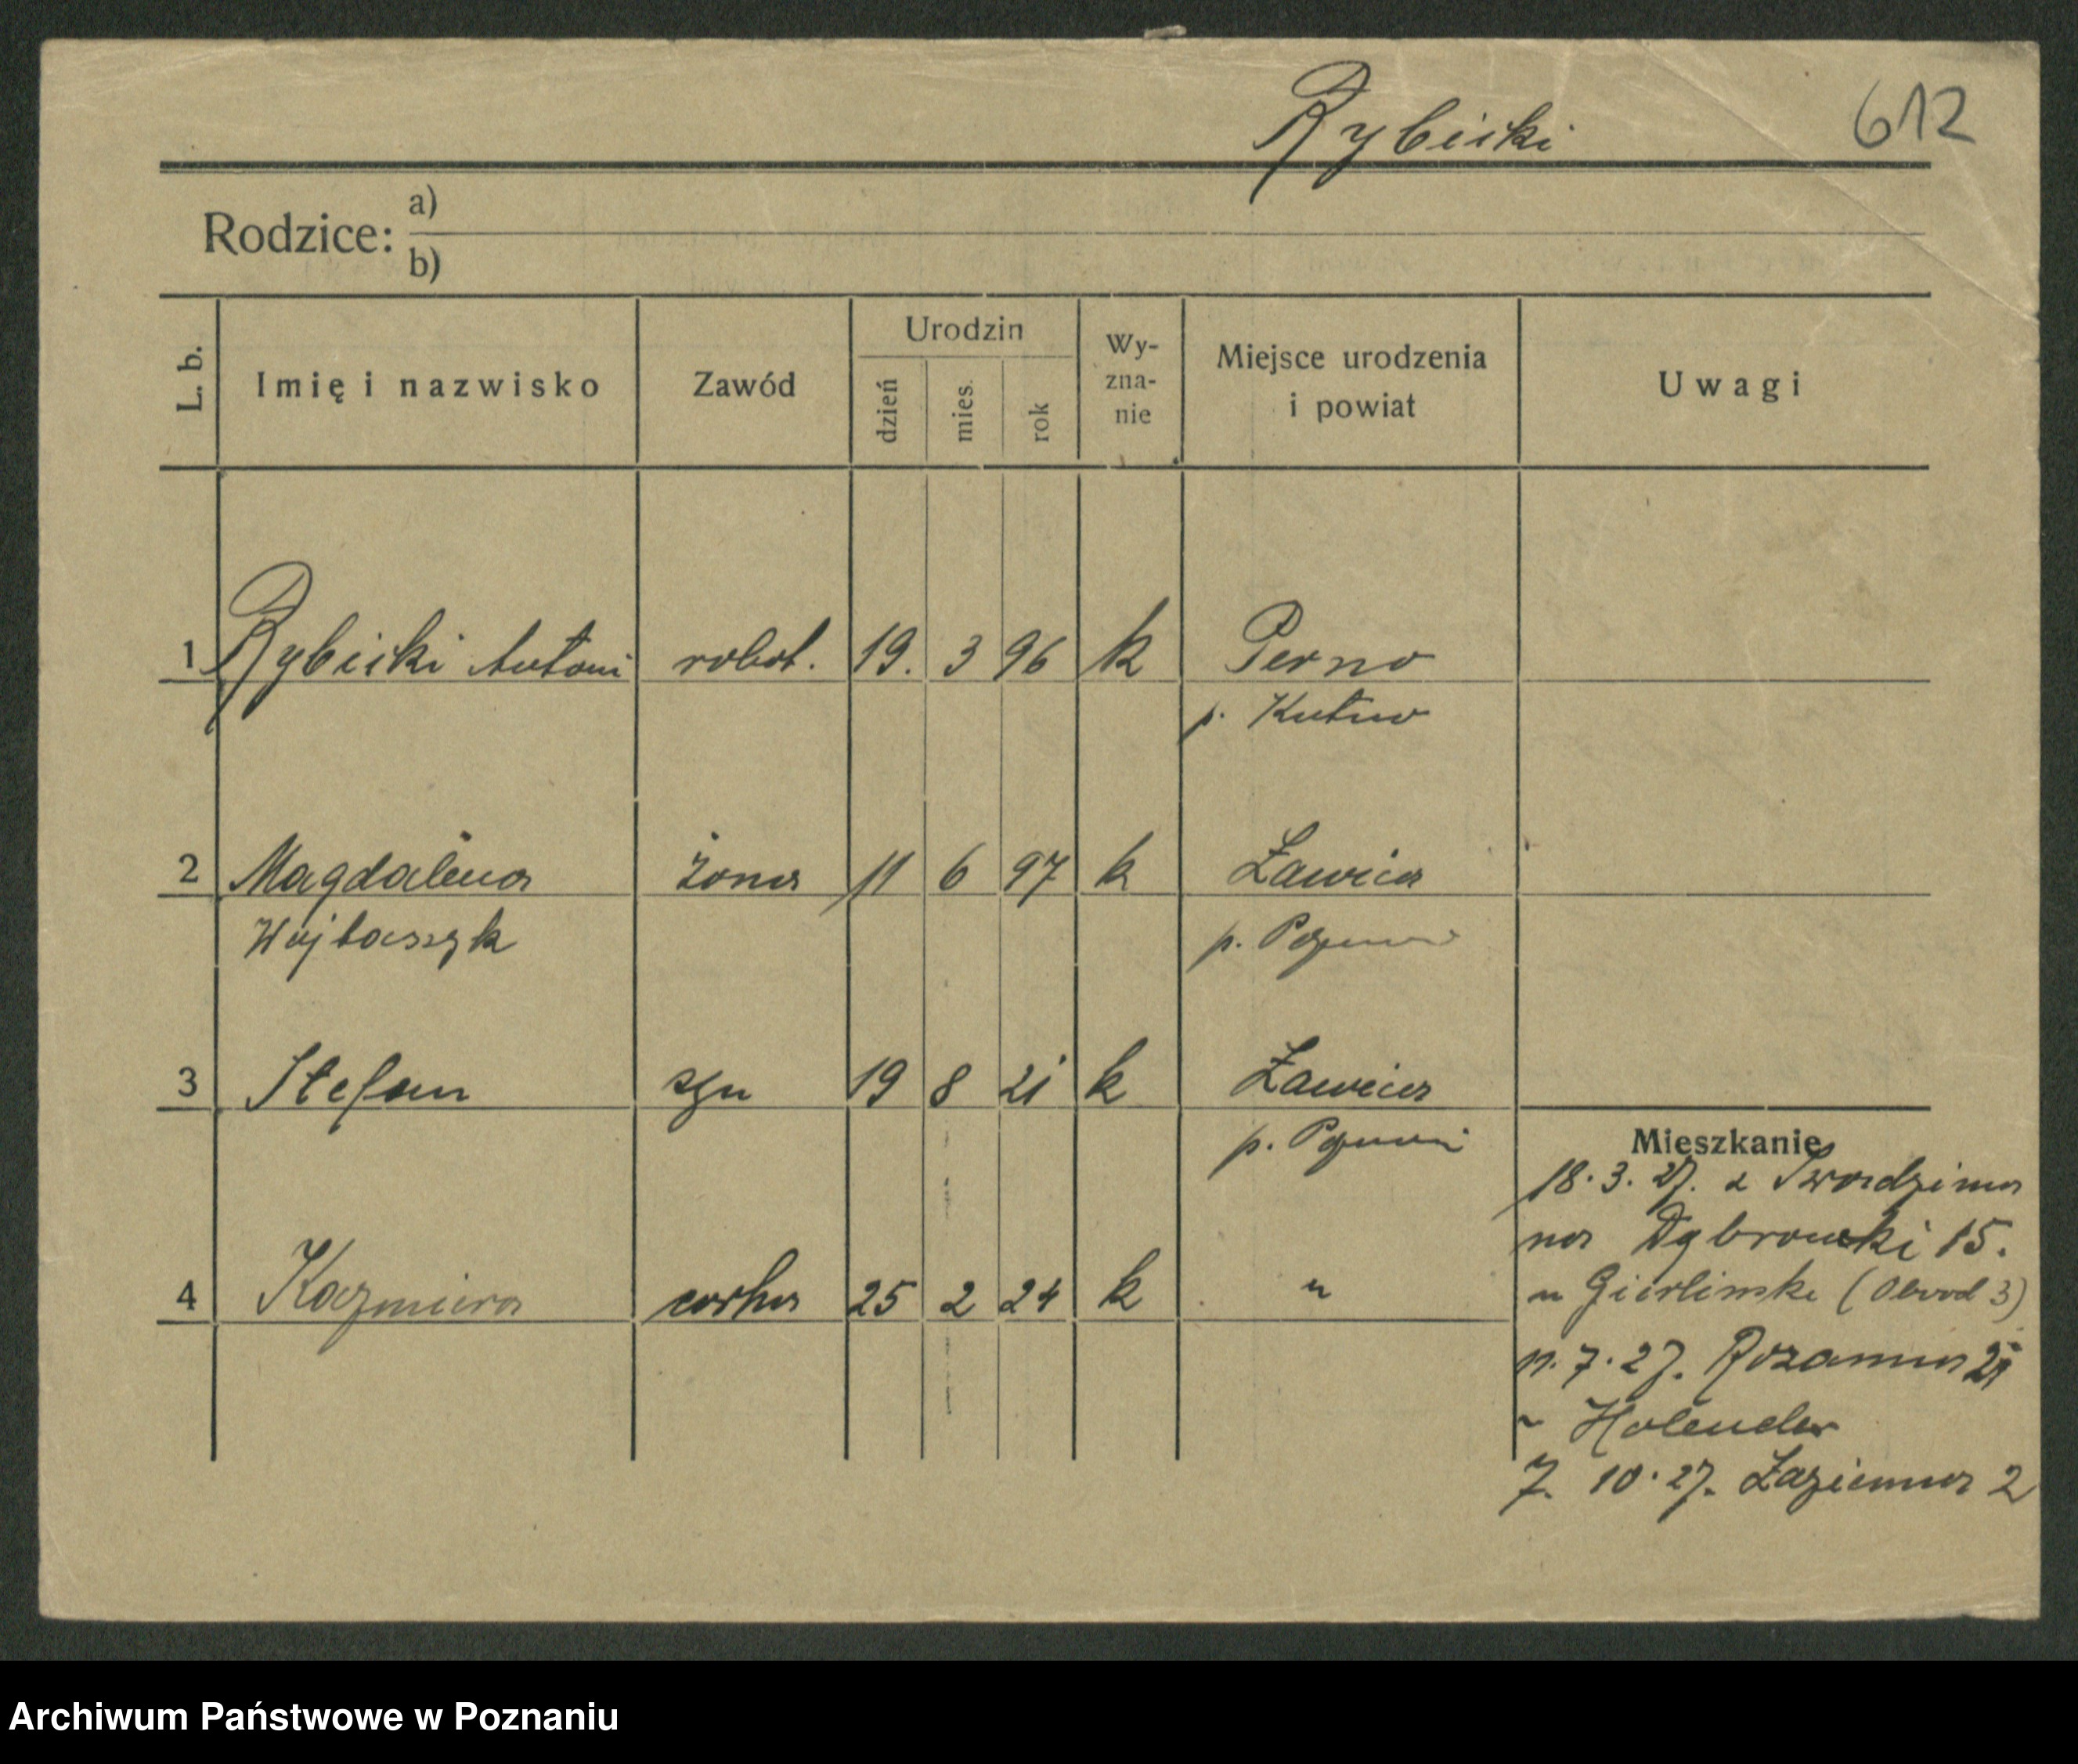 Rybicki 612
Rodzice: a)
b)
L. b. Imię i nazwisko Zawód Urodzin dzień mies. rok Wy-zna-nie Miejsce urodzenia i powiat Uwagi
1 Rybicki Antoni robot. 19. 3 96 k Perno
p. Kutno
2 Magdalena żona 11 6 97 k Ławica
Wojtaszyk p. Poznań
3 Stefan syn 19 8 21 k Ławica
p. Poznań
4 Kazmiera corka 25 2 24 k "
Mieszkanie
18. 3. 27. z Swordzima
na Dąbrowski 15.
u Gierlinski (Obwod 3)
11. 7. 27. Rozanna
~ Holender
7. 10. 27. Łazienna 2
Archiwum Państwowe w Poznaniu